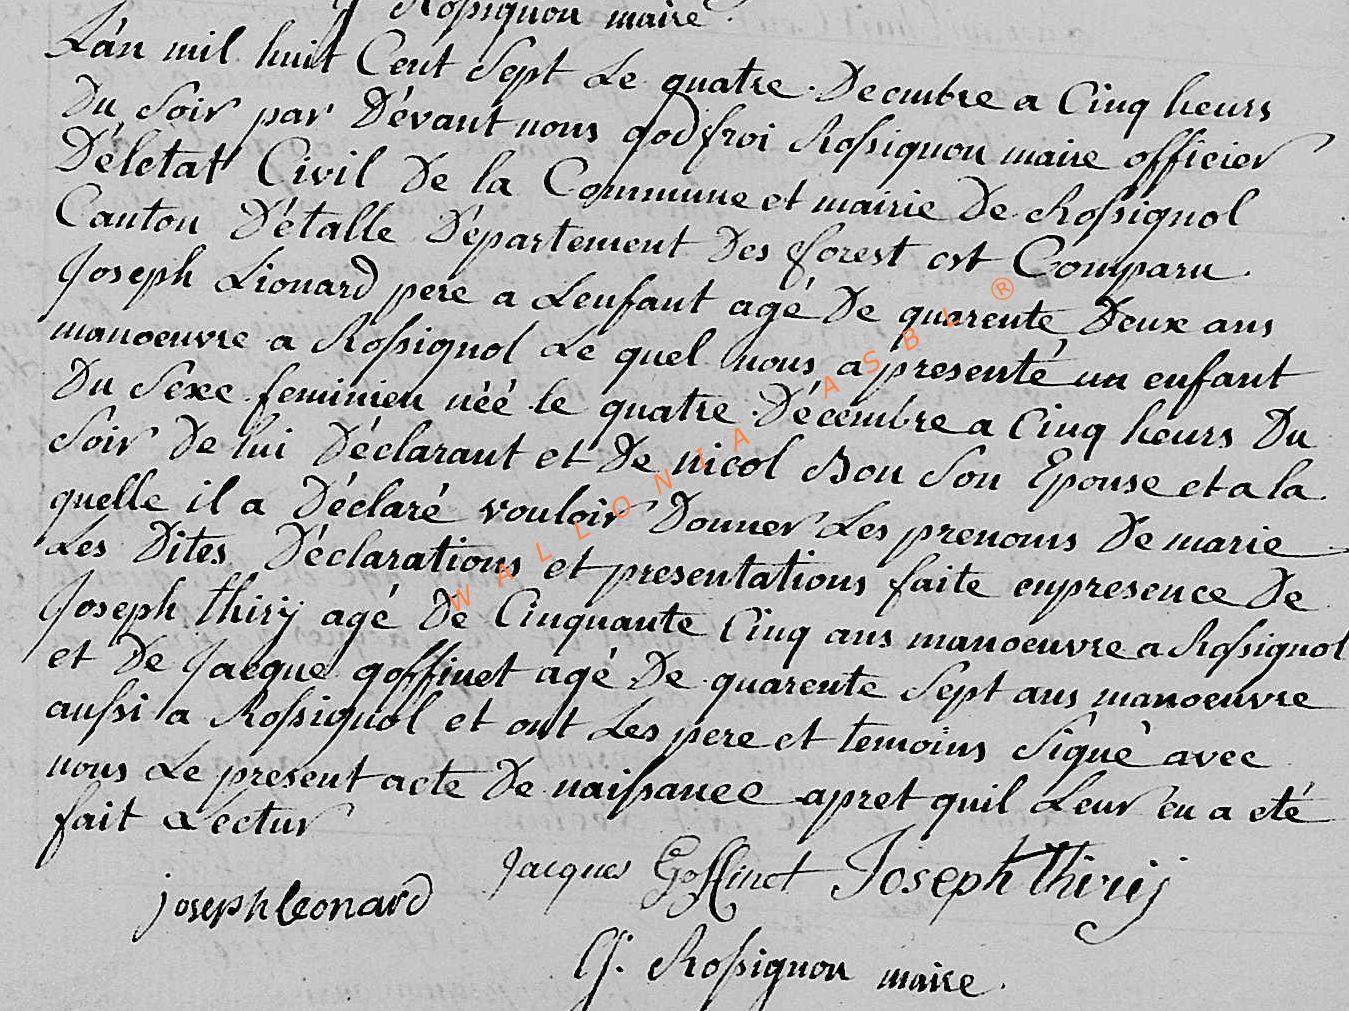 Rossignon maire.
L'an mil huit Cent Sept Le quatre Decembre a Cinq heurs
Du Soir par Dévant nous godfroi Rossignon maire officier
Déletat Civil De la Commune et mairie De Rossignol
Canton D'étalle Département Des forest est Comparu
Joseph Lionard pere a Lenfant agé De quarente Deux ans
manoeuvre a Rossignol Le quel nous a presenté un enfant
Du Sexe feminien néé le quatre Décembre a Cinq heurs Du
Soir De lui Déclarant et De nicol Bon Son Epouse et a la
quelle il a Déclaré vouloir Donner Les prenoms De marie
Les Dites Déclarations et presentations faite enpresence De
Joseph thirij agé De Cinquante Cinq ans manoeuvre a Rossignol
et De Jacque goffinet agé De quarente Sept ans manoeuvre
aussi a Rossignol et ont Les pere et temoins Signé avec
nous Le present acte De naissance apret quil Leur en a eté
fait Lectur
Jacques Goffinet Joseph Thirij
joseph leonard
G. Rossignon maire.
WALLONIA ASBL ®